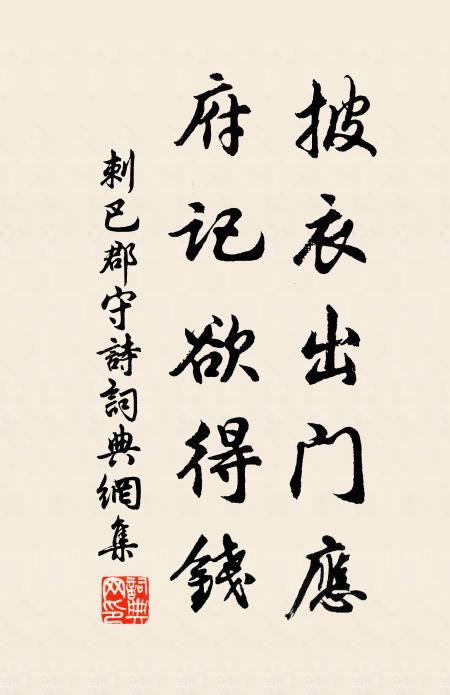 披衣出门應
府记欲得錢
刺巴郡守詩詞典網集
詞典
网印